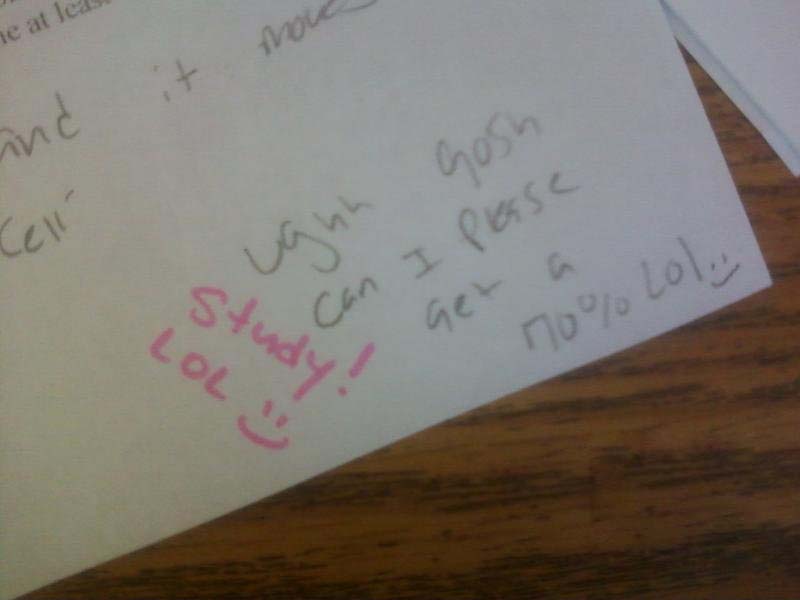 ne at leas
and it move
Cell
ughh gosh
can I please
get a
70% LOL
Study!
LOL